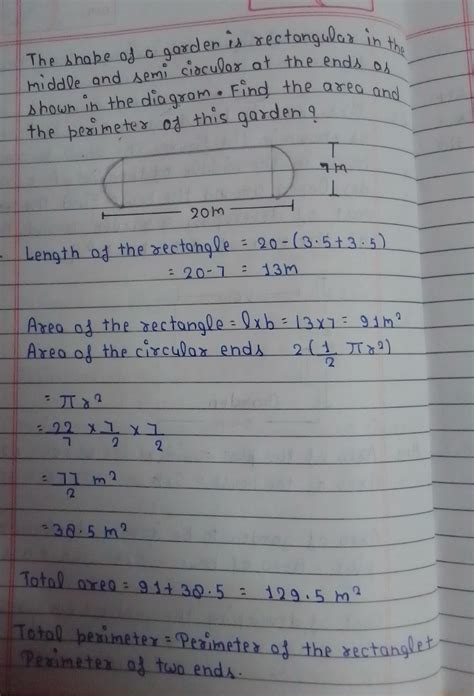 The shape of a garden is rectangular in the
middle and semi circular at the ends as
shown in the diagram. Find the area and
the perimeter of this garden?
7m
20m
Length of the rectangle = 20-(3.5+3.5)
= 20-7 = 13m
Area of the rectangle = l×b = 13×7 = 91m²
Area of the circular ends 2(1/2 πr²)
= πr²
= 22/7 × 7/2 × 7/2
= 77/2 m²
= 38.5 m²
Total area = 91+38.5 = 129.5 m²
Total perimeter = Perimeter of the rectangle+
Perimeter of two ends.